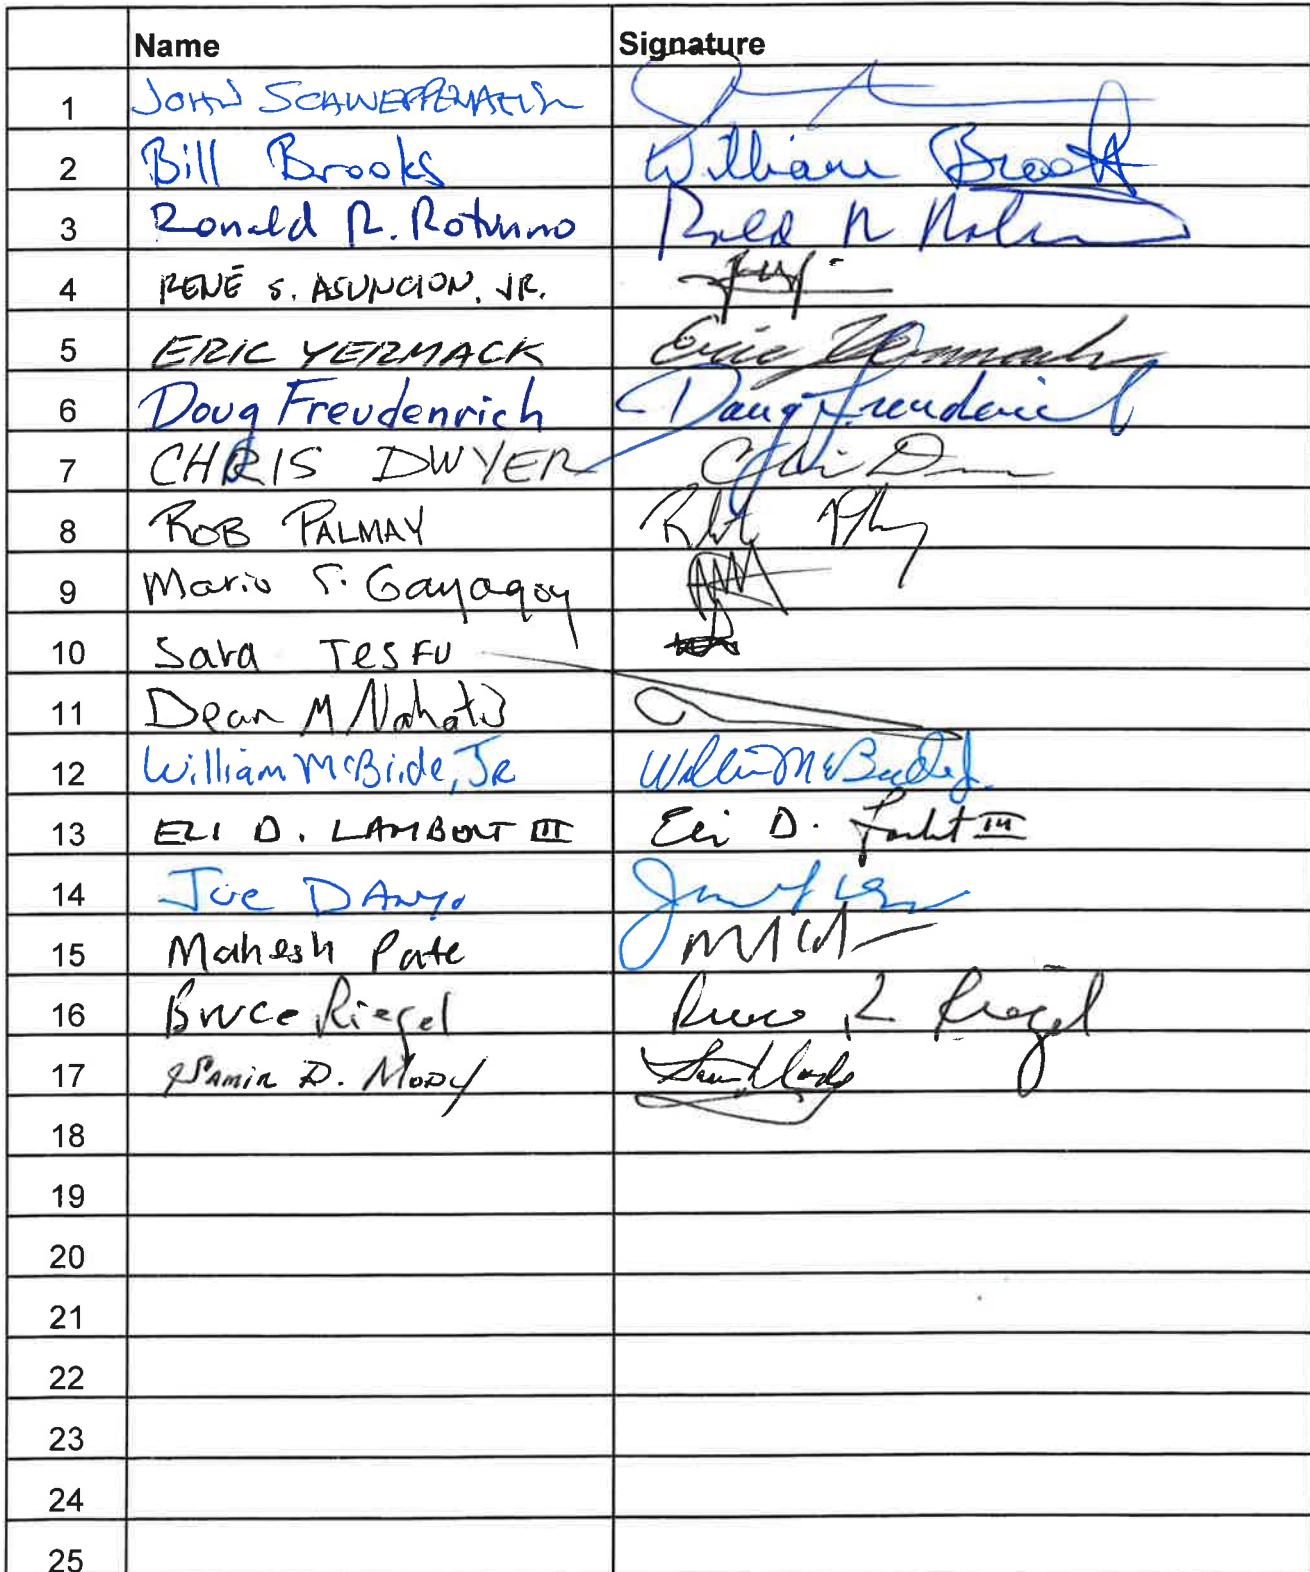 Name Signature
1 JOHN
2 Bill Brooks William Brooks
3 Ronald R. Rotunno
4 RENÉ S. ASUNCION, JR.
5 ERIC YERMACK Eric Yermack
6 Doug Freudenrich Doug Freudenrich
7 CHRIS DWYER Chris
8 ROB PALMAY
9 Mario S. Gayagoy
10 Sara TESFU
11 Dean M
12 William McBride, JR William McBride Jr.
13 ELI D. LAMBERT III Eli D. Lambert III
14 Joe
15 Mahesh Pate
16 Bruce Riegel Bruce R Riegel
17 Samir D. Mody
18
19
20
21
22
23
24
25